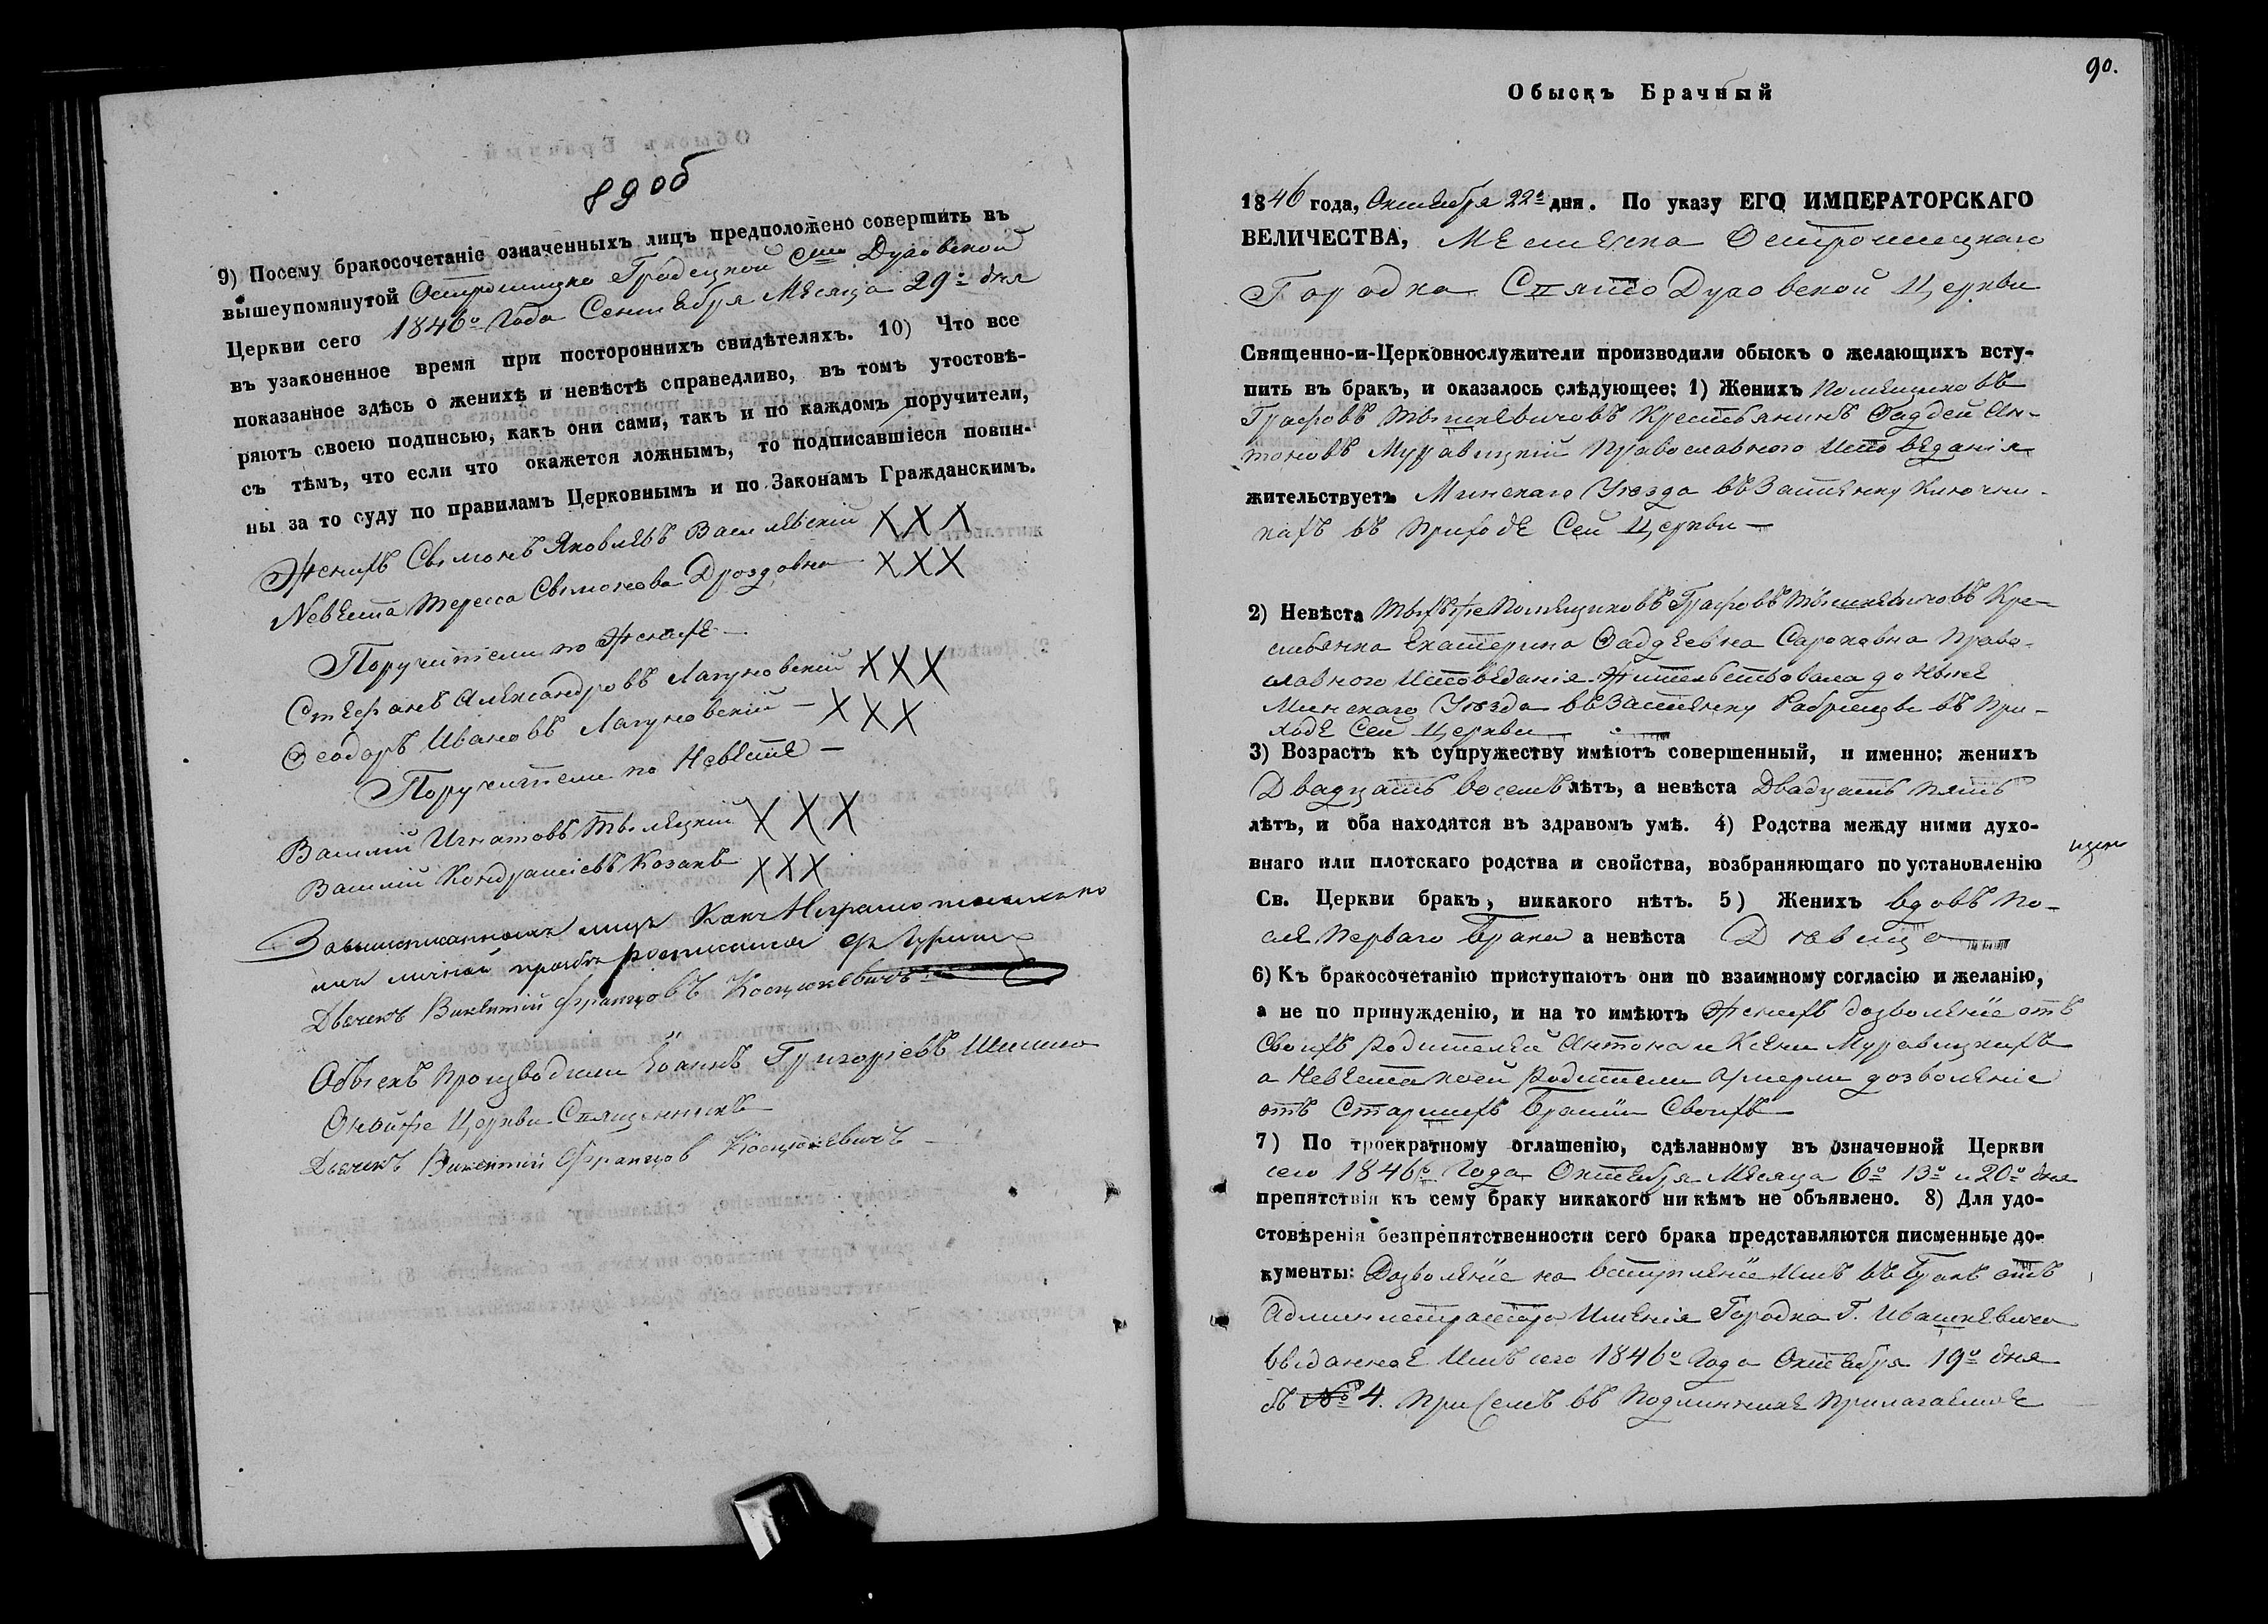 89 об
9) Посему бракосочетаніе означенныхъ лицъ предположено совершить въ
вышеупомянутой Острошицко Градецкой Духовской
Церкви сего 1846го Года Сентября Месяца 29го дня
въ узаконенное время при постороннихъ свидѣтеляхъ. 10) Что все
показанное здѣсь о женихѣ и невѣстѣ справедливо, въ томъ утостовѣ-
ряютъ своею подписью, какъ они сами, такъ и по каждомъ поручители,
съ тѣмъ, что если что окажется ложнымъ, то подписавшіеся повин-
ны за то суду по правиламъ Церковнымъ и по Законамъ Гражданскимъ.
Женихъ Сымонъ Яковлевъ Василевскій XXX
Невеста Тереса Сымонова Дроздовна XXX
Поручители по Женихе
Стефанъ Александровъ Лагуновскій XXX
Ѳеодоръ Ивановъ Лагуновскій XXX
Поручители по Невесте
Василій Игнатовъ XXX
Василій Кондратіевъ Козакъ XXX
лицъ какъ
личной прозбе росписался
Дьячекъ Викентій Францовъ Косцюкевичъ
Обыскъ производили Іоаннъ Григоріевъ
Онойже Церкви Священникъ
Дьячекъ Викентій Францов Косцюкевичъ
90.
Обыскъ Брачный
1846 года, Октября 22го дня. По указу ЕГО ИМПЕРАТОРСКАГО
ВЕЛИЧЕСТВА, Местечка Острошицкаго
Городка Святто Духовской Церкви
Священно-и-Церковнослужители производили обыскъ о желающихъ всту-
пить въ бракъ, и оказалось слѣдующее: 1) Женихъ Помещиковъ
Графовъ Тышкевичовъ Крестьянинъ Фаддей Ан-
тоновъ Муравицкій Православного Исповеданія
жительствуетъ Минскаго Уезда въ Застенку
въ Приходе Сей Церкви
2) Невѣста Техже Помещиковъ Графовъ Тышкевичовъ Кре-
стьянка Екатерина Фаддеевна Сароковна Право-
славного Исповеданія. Жительствовала до Ныне
Минскаго Уезда въ Застенку въ При-
ходе Сей Церкви
3) Возрастъ къ супружеству имѣютъ совершенный, и именно: женихъ
Двадцать восемь лѣтъ, а невѣста Двадцать пять
лѣтъ, и оба находятся въ здравомъ умѣ. 4) Родства между ними духо-
внаго или плотскаго родства и свойства, возбраняющаго по установленію
Св. Церкви бракъ, никакого нѣтъ. 5) Женихъ вдовъ По-
сле Перваго Брака а невѣста Девица
6) Къ бракосочетанію приступаютъ они по взаимному согласію и желанію,
а не по принужденію, и на то имѣютъ Женихъ дозволеніе отъ
Своихъ Родителей Антона и Ксени Муравицкихъ
а Невеста коей Родители Умерли дозволеніе
отъ Старшихъ Братій Своихъ
7) По троекратному оглашенію, сдѣланному въ означенной Церкви
сего 1846го Года Октебря Месяца 6го 13го и 20го дня
препятствія къ сему браку никакого ни кѣмъ не объявлено. 8) Для удо-
стовѣренія безпрепятственности сего брака представляются писменные до-
кументы: Дозволеніе на вступленіе Имъ въ Бракъ отъ
Администратора Именія Городка Г. Ивашкевича
выданное Имъ сего 1846го Года Октебря 19го дня
съ № 4. При Семъ въ Подлиннике Прилагаемое